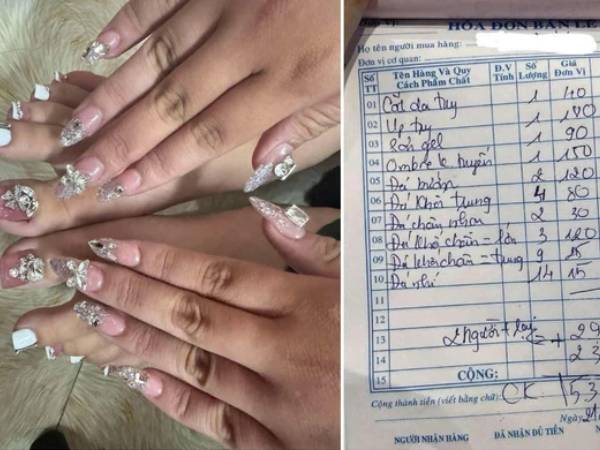 HÓA ĐƠN BÁN LẺ
Họ tên người mua hàng:
Đơn vị cơ quan:
Số TT Tên Hàng Và Quy Cách Phẩm Chất Đ.V Tính Số Lượng Giá Đơn Vị
01 Cắt da tay 1 40
02 Úp tay 1 180
03 Sơn gel 1 90
04 Ombre 1 150
05 Đá bướm 2 120
06 Đá khối trung 4 80
07 2 30
08 Đá khối chân - lớn 3 120
09 Đá khối chân - trung 9 25
10 Đá nhí 14 15
11
12
13 2 người
14
15
CỘNG: CK 153
Cộng thành tiền (viết bằng chữ):
Ngày
NGƯỜI NHẬN HÀNG ĐÃ NHẬN ĐỦ TIỀN